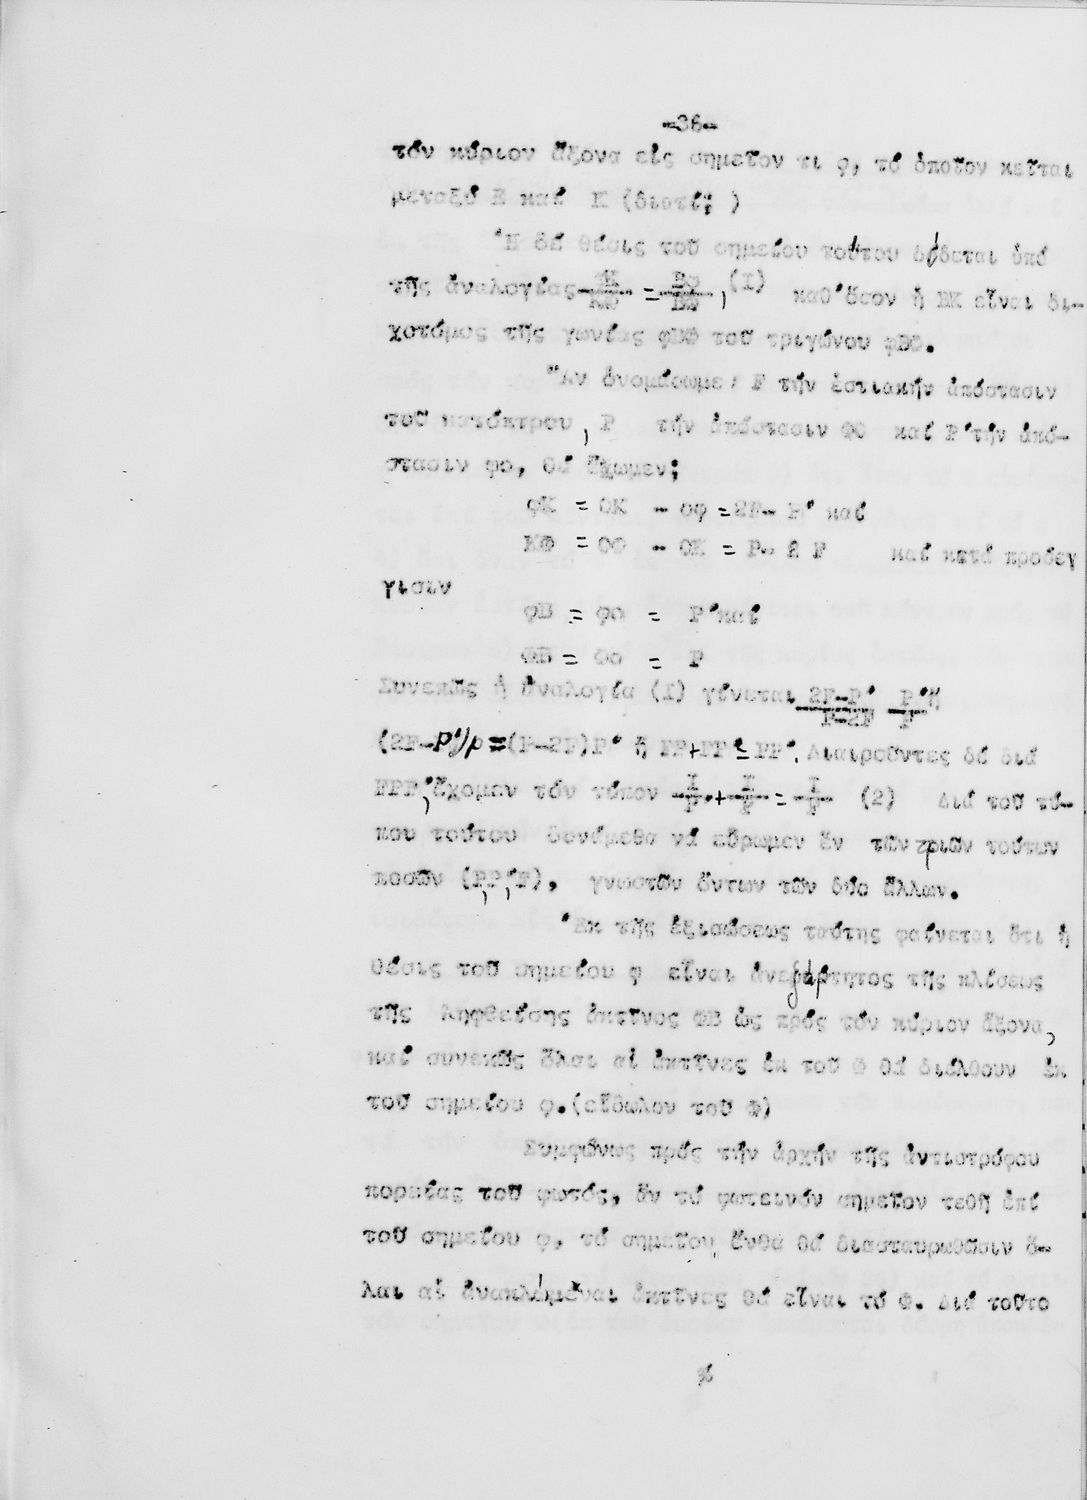 -36-
τόν κύριον ἄξονα εἰς σημεῖον τι φ, τό ὁποῖον κεῖται
μεταξύ Ε καί Κ (διατί; )
Ἡ δέ θέσις τοῦ σημείου τούτου δίδεται ὑπό
τῆς ἀναλογίας = , (Ι) καθ'ὅσον ἡ ΒΚ εἶναι δι-
χοτόμος τῆς γωνίας φΒΦ τοῦ τριγώνου φΒΦ.
Ἄν ὀνομάσωμε F τήν ἑστιακήν ἀπόστασιν
τοῦ κατόπτρου, P τήν ἀπόστασιν ΦΟ καί P'τήν ἀπό-
στασιν φο, θά ἔχωμεν;
φΚ = ΟΚ - Οφ =2F- P' καί
ΚΦ = ΟΦ - ΟΚ = P- 2 F καί κατά προσέγ
γισιν
φΒ = φο = P'καί
ΦΒ = Φο = P
Συνεπῶς ἡ ἀναλογία (Ι) γίνεται 2F-P'/P-2F P'/P ἤ
(2F-P')P =(P-2F)P' ἤ FP+FP'=PP'. Διαιροῦντες δέ διά
FPP',ἔχομεν τόν τύπον Ι/P'+Ι/P=Ι/F (2) Διά τοῦ τύ-
που τούτου δυνάμεθα νά εὕρωμεν ἕν τῶν τριῶν τούτων
ποσῶν (P,P',F), γνωστῶν ὄντων τῶν δύο ἄλλων.
Ἐκ τῆς ἐξισώσεως ταύτης φαίνεται ὅτι ἡ
θέσις τοῦ σημείου φ εἶναι ἀνεξάρτητος τῆς κλίσεως
τῆς ληφθείσης ἀκτῖνος ΦΒ ὡς πρός τόν κύριον ἄξονα,
καί συνεπῶς ὅλαι αἱ ἀκτῖνες ἐκ τοῦ Φ θά διέλθουν ἐκ
τοῦ σημείου φ.(εἴδωλον τοῦ Φ)
Συμφώνως πρός τήν ἀρχήν τῆς ἀντιστρόφου
πορείας τοῦ φωτός, ἄν τό φωτεινόν σημεῖον τεθῆ ἐπί
τοῦ σημείου φ, τό σημεῖον ἔνθα θά διασταυρωθῶσιν ὅ-
λαι αἱ ἀνακλώμεναι ἀκτῖνες θά εἶναι τό Φ. Διά τοῦτο